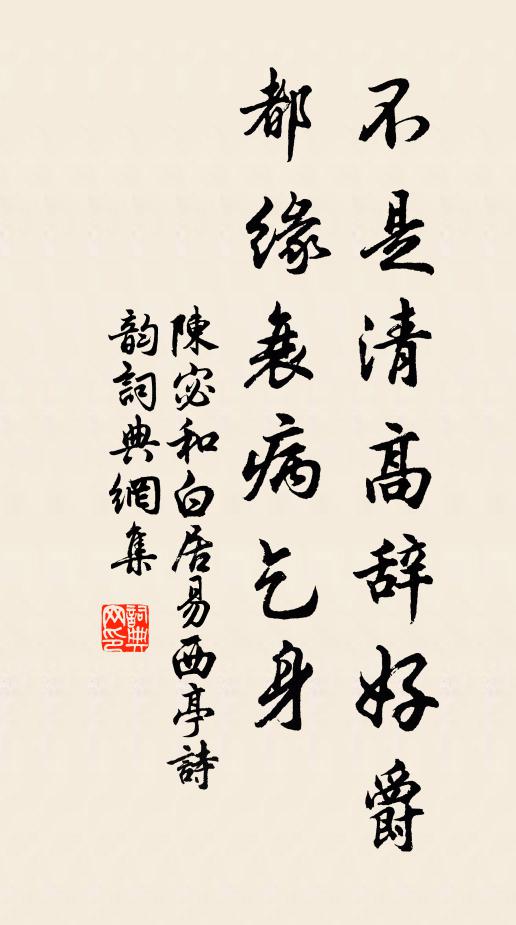 不是清高辞好爵
都缘衰病乞身
陳宓和白居易西亭詩
韵詞典網集
詞典网印